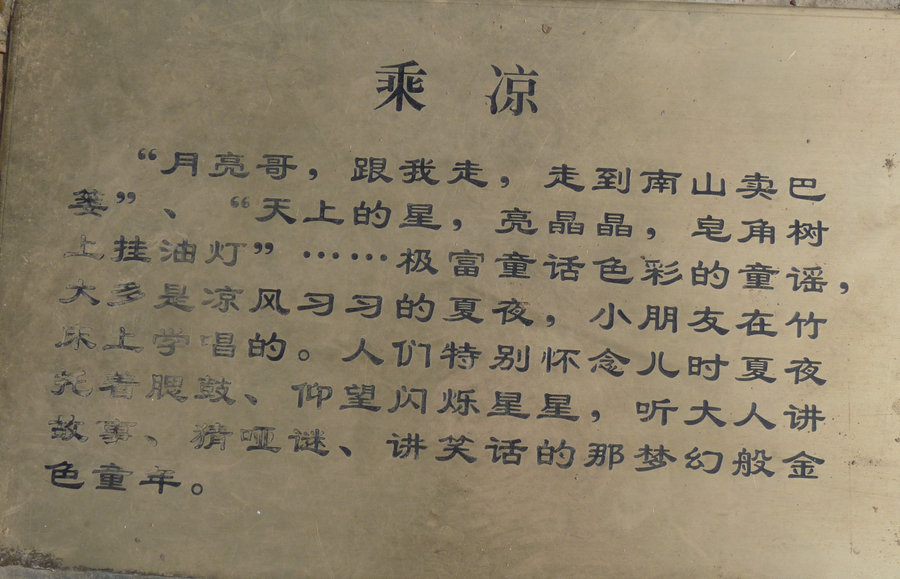 乘凉
“月亮哥，跟我走，走到南山卖巴
篓”、“天上的星，亮晶晶，皂角树
上挂油灯”……极富童话色彩的童谣，
大多是凉风习习的夏夜，小朋友在竹
床上学唱的。人们特别怀念儿时夏夜
托着腮鼓、仰望闪烁星星，听大人讲
故事、猜哑谜、讲笑话的那梦幻般金
色童年。